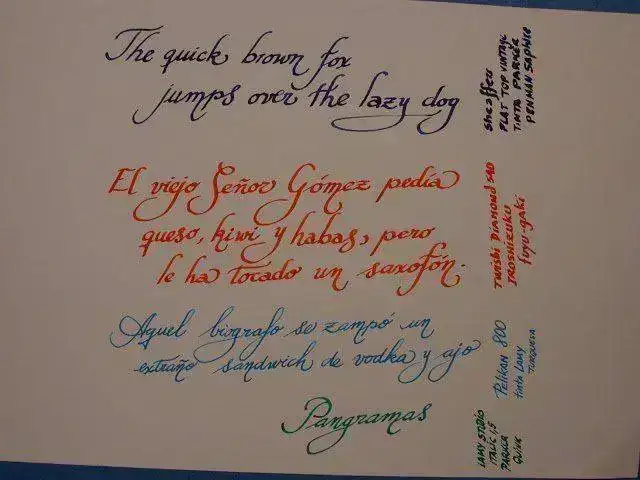 The quick brown fox
jumps over the lazy dog
sheaffer
FLAT TOP VINTAGE
TINTA PARKER
PENMAN SAPHIRE
El viejo Señor Gómez pedía
queso, kiwi y habas, pero
le ha tocado un saxofón.
TWISBI DIAMOND 540
IROSHIZUKU
fuyu-gaki
Aquel biografo se zampó un
extraño sandwich de vodka y ajo
PELIKAN 800
tinta LAMY
TURQUESA
Pangramas
LAMY STUDIO
ITALIC 1,5
PARKER
QUINK